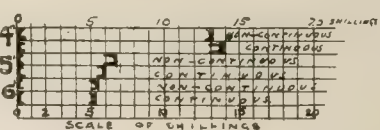 0 5 10 15 20 SHILLINGS
4 NON-CONTINUOUS
CONTINUOUS
5 NON-CONTINUOUS
CONTINUOUS
6 NON-CONTINUOUS
CONTINUOUS
0 5 10 15 20
SCALE OF SHILLINGS